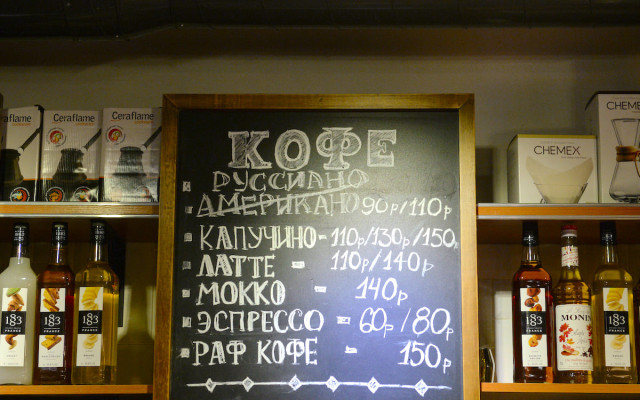 Ceraflame
Ceraflame
Ceraflame
CHEMEX
CHEMEX
КОФЕ
РУССИАНО
АМЕРИКАНО 90р/110р
КАПУЧИНО - 110р/130р/150р
ЛАТТЕ - 110р/140р
МОККО - 140р
ЭСПРЕССО - 60р/80р
РАФ КОФЕ - 150р
1883
1883
1883
1883
MONIN
1883